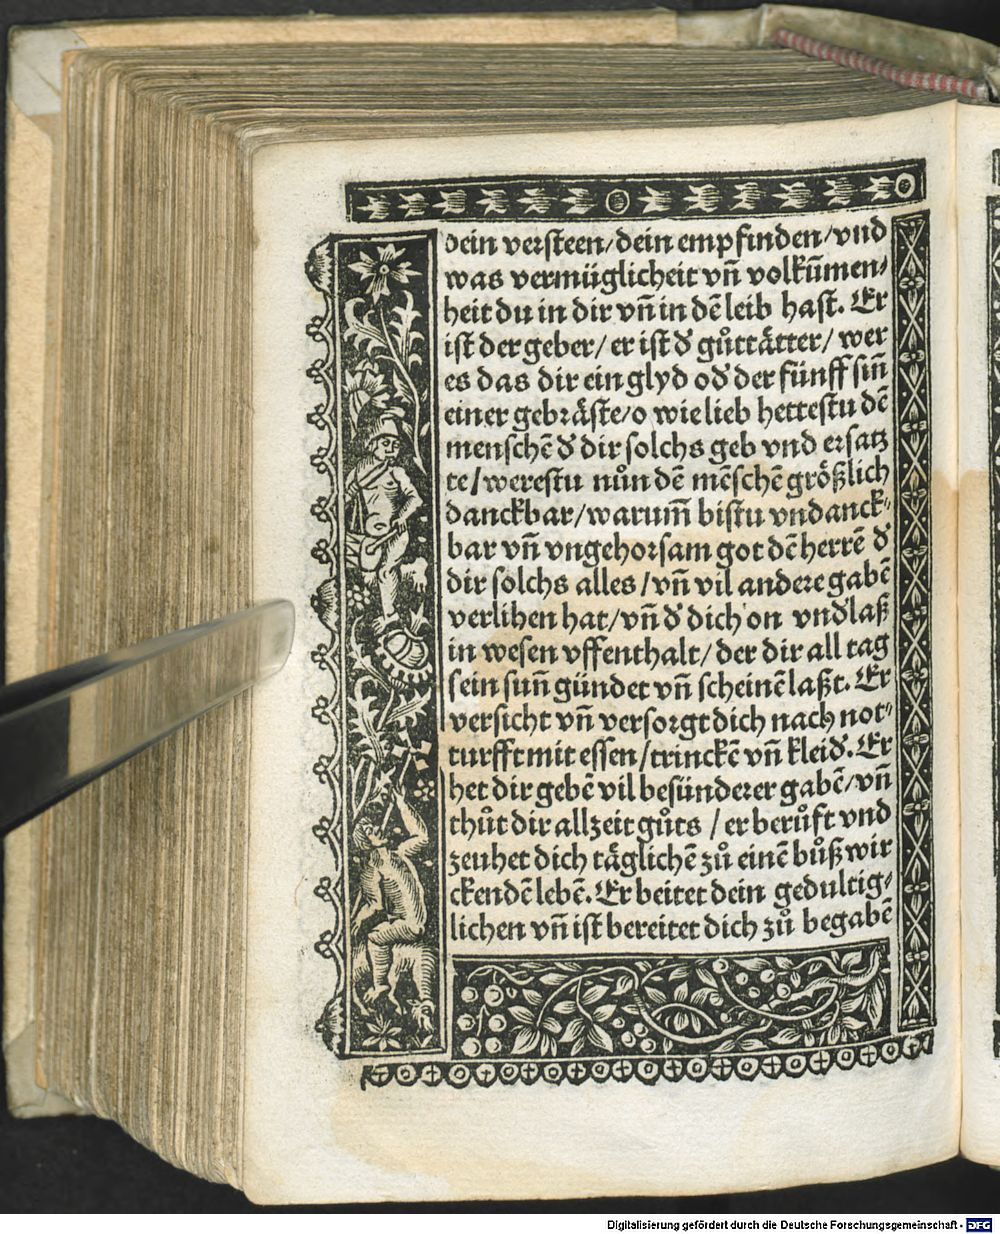 dein versteen/dein empfinden/vnd
was vermüglicheit vñ volkūmen⸗
heit du in dir vñ in dē leib hast. Er
ist der geber/ er ist d' gůttätter/ wer
es das dir ein glyd od' der fünff siñ
einer gebräste/o wie lieb hettestu dē
menschē d' dir solchs geb vnd ersatz
te/werestu nůn dē mēschē größlich
danckbar/warum̃ bistu vndanck⸗
bar vñ vngehorsam got dē herrē d'
dir solchs alles/vñ vil andere gabē
verlihen hat/vñ d' dich on vnd'laß
in wesen vffenthalt/der dir all tag
sein suñ gündet vñ scheinē laßt. Er
versicht vñ versorgt dich nach not⸗
turfft mit essen/trinckē vñ kleid'. Er
het dir gebē vil besünderer gabē/vñ
thůt dir allzeit gůts /er berůft vnd
zeuhet dich täglichē zů einē bůßwir
ckenden lebē. Er beitet dein gedultig⸗
lichen vñ ist bereitet dich zů begabē
Digitalisierung gefördert durch die Deutsche Forschungsgemeinschaft - DFG